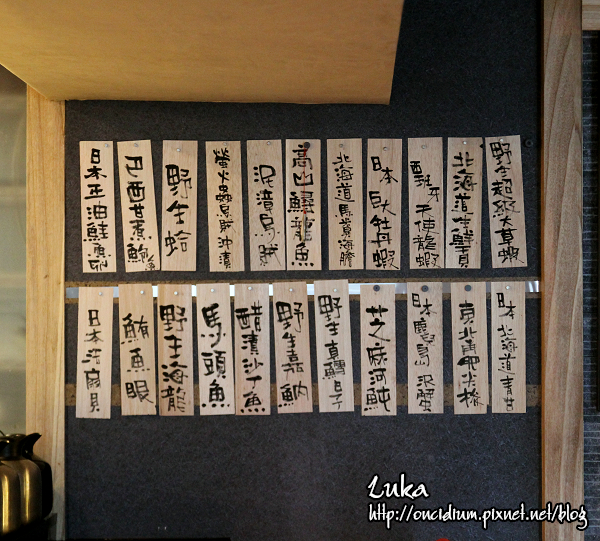 野生超級大草蝦
北海道生鮮貝
西班牙天使龍蝦
日本巨大牡蝦
北海道馬糞海膽
高山鱘龍魚
泥漬烏賊
螢火蟲烏賊沖漬
野生蛤
巴西甘煮鮑
日本玉油鮭魚卵
日本北海道青甘
東北角
日本鹿兒島沢蟹
芝麻河魨
野生真鱈白子
野生嘉納
醋漬沙丁魚
馬頭魚
野生海龍
鮪魚眼
日本汚扇貝
Luka
http://oncidium.pixnet.net/blog